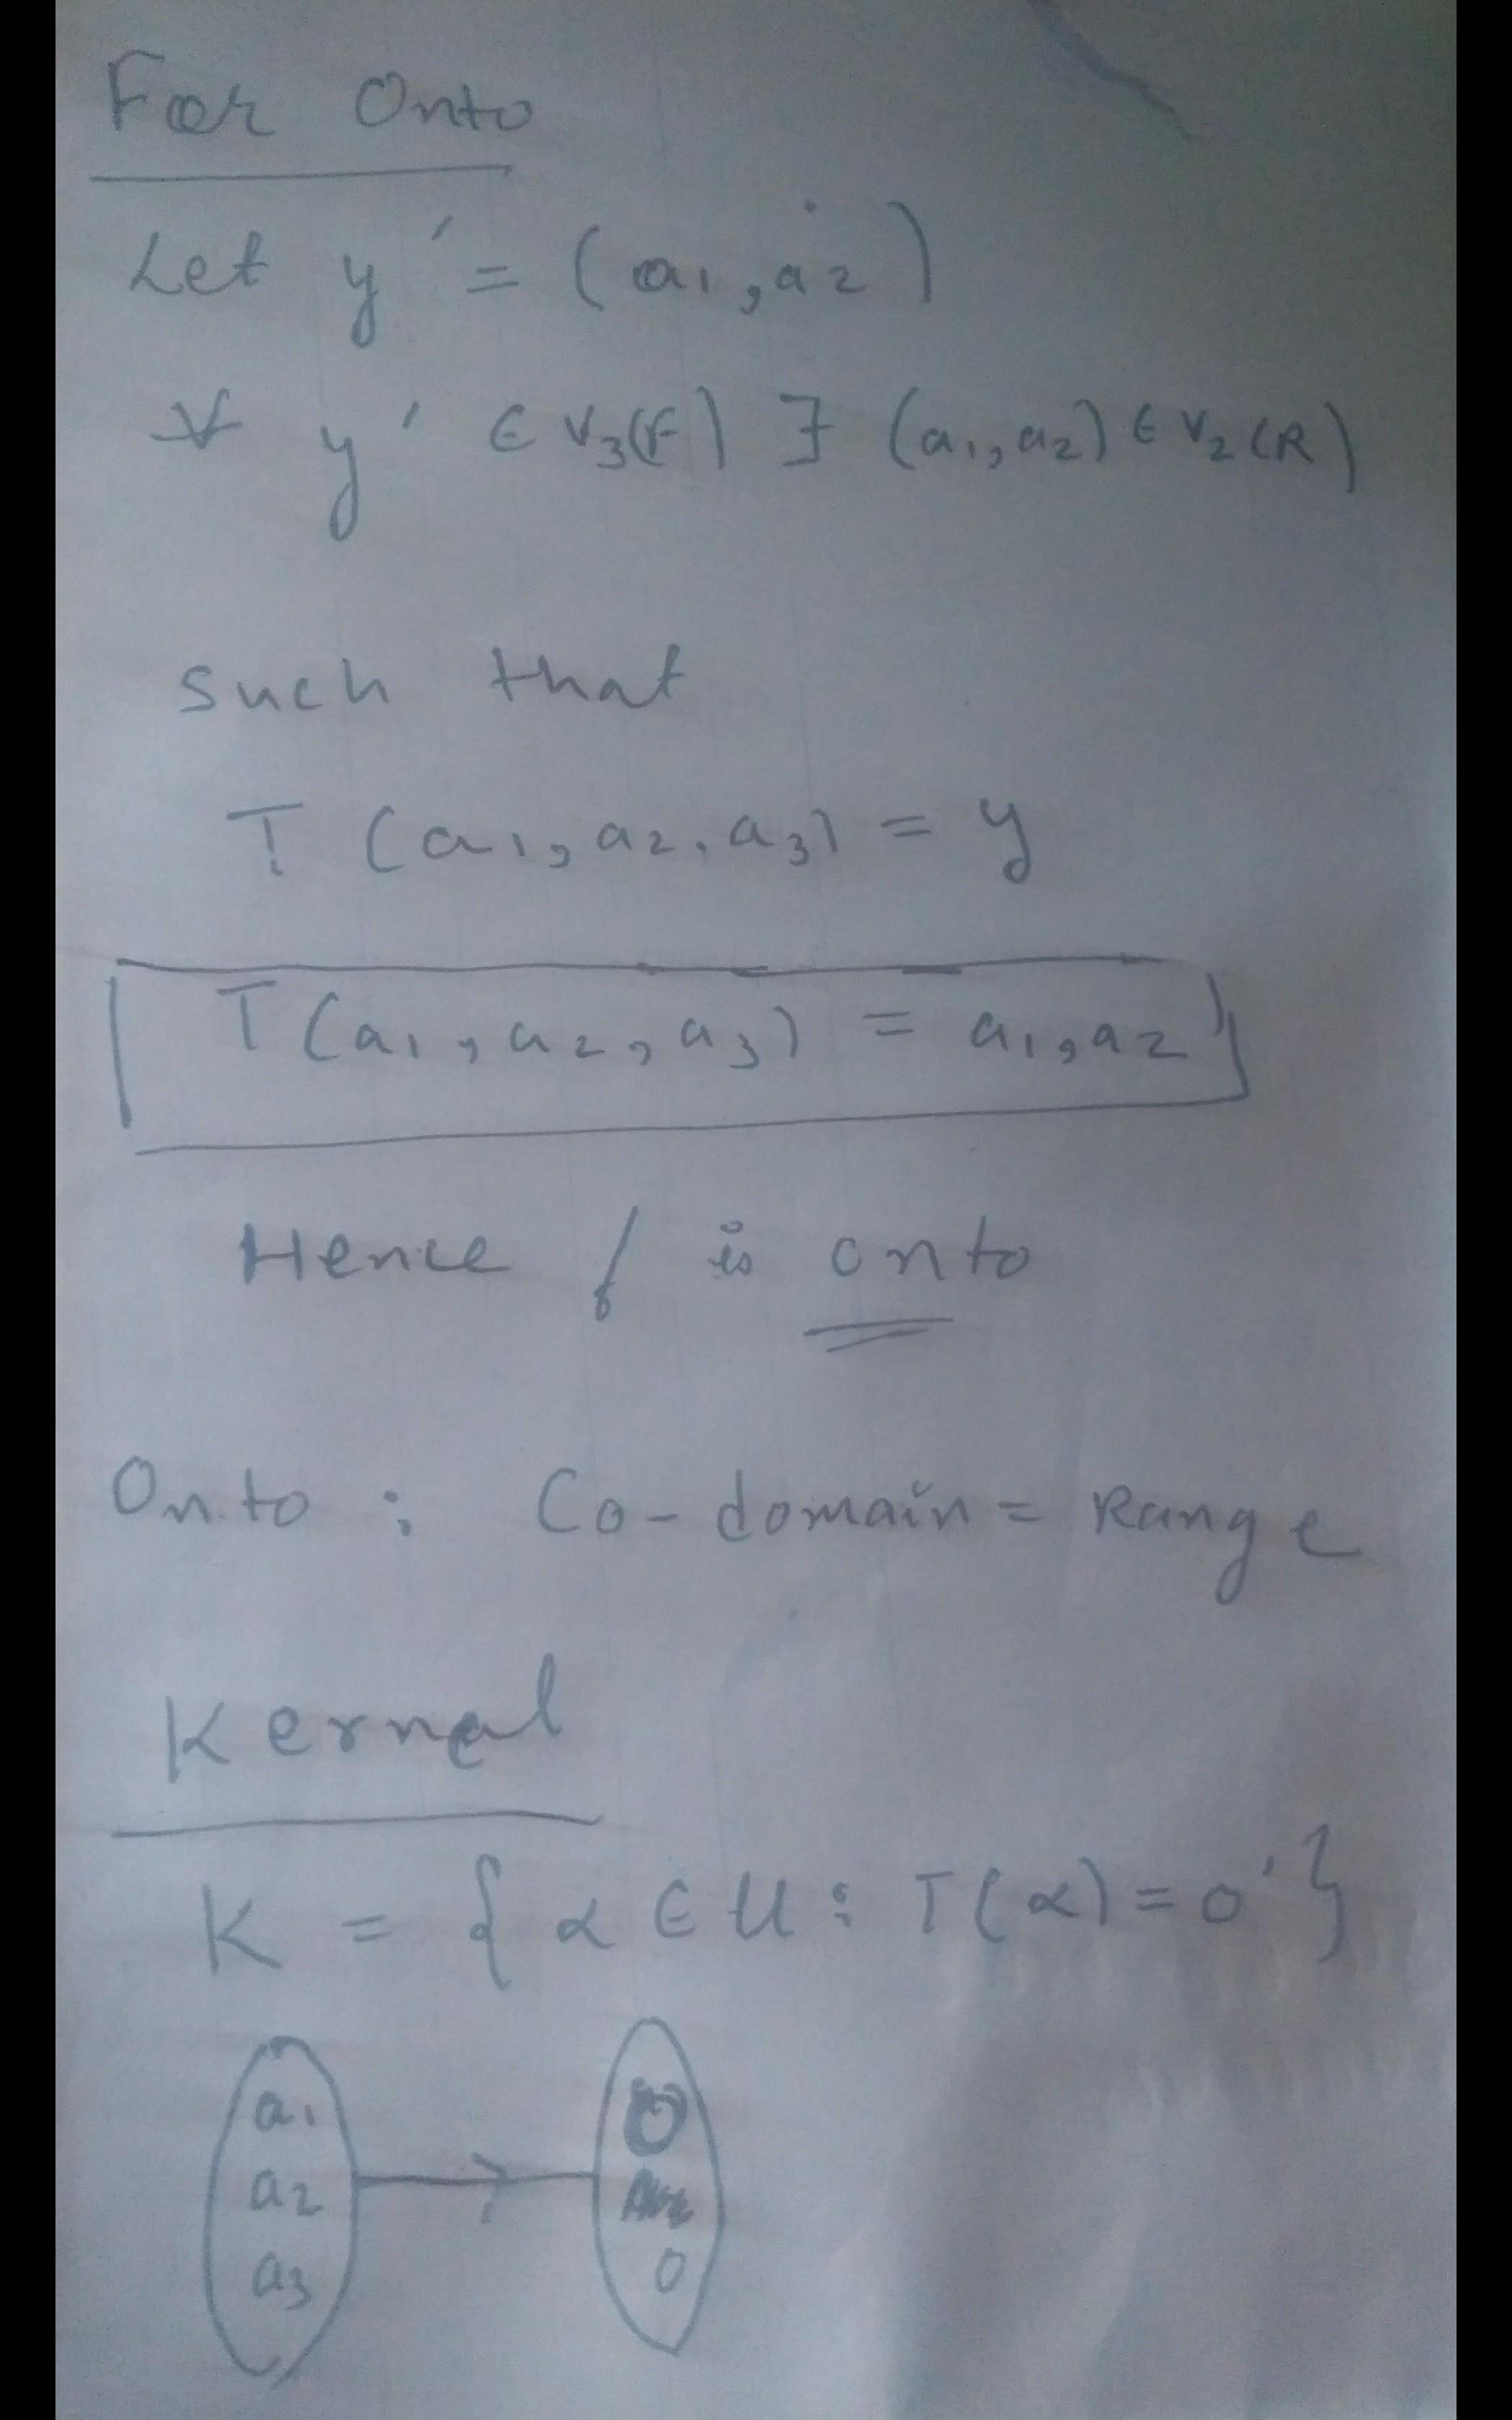 For Onto
Let y' = (a1, a2)
∀ y' ∈ V3(F) ∃ (a1, a2) ∈ V2(R)
such that
T (a1, a2, a3) = y
T(a1, a2, a3) = a1, a2
Hence f is onto
Onto : Co-domain = Range
Kernel
K = { α ∈ U : T(α) = 0' }
a1 0
a2
a3 0